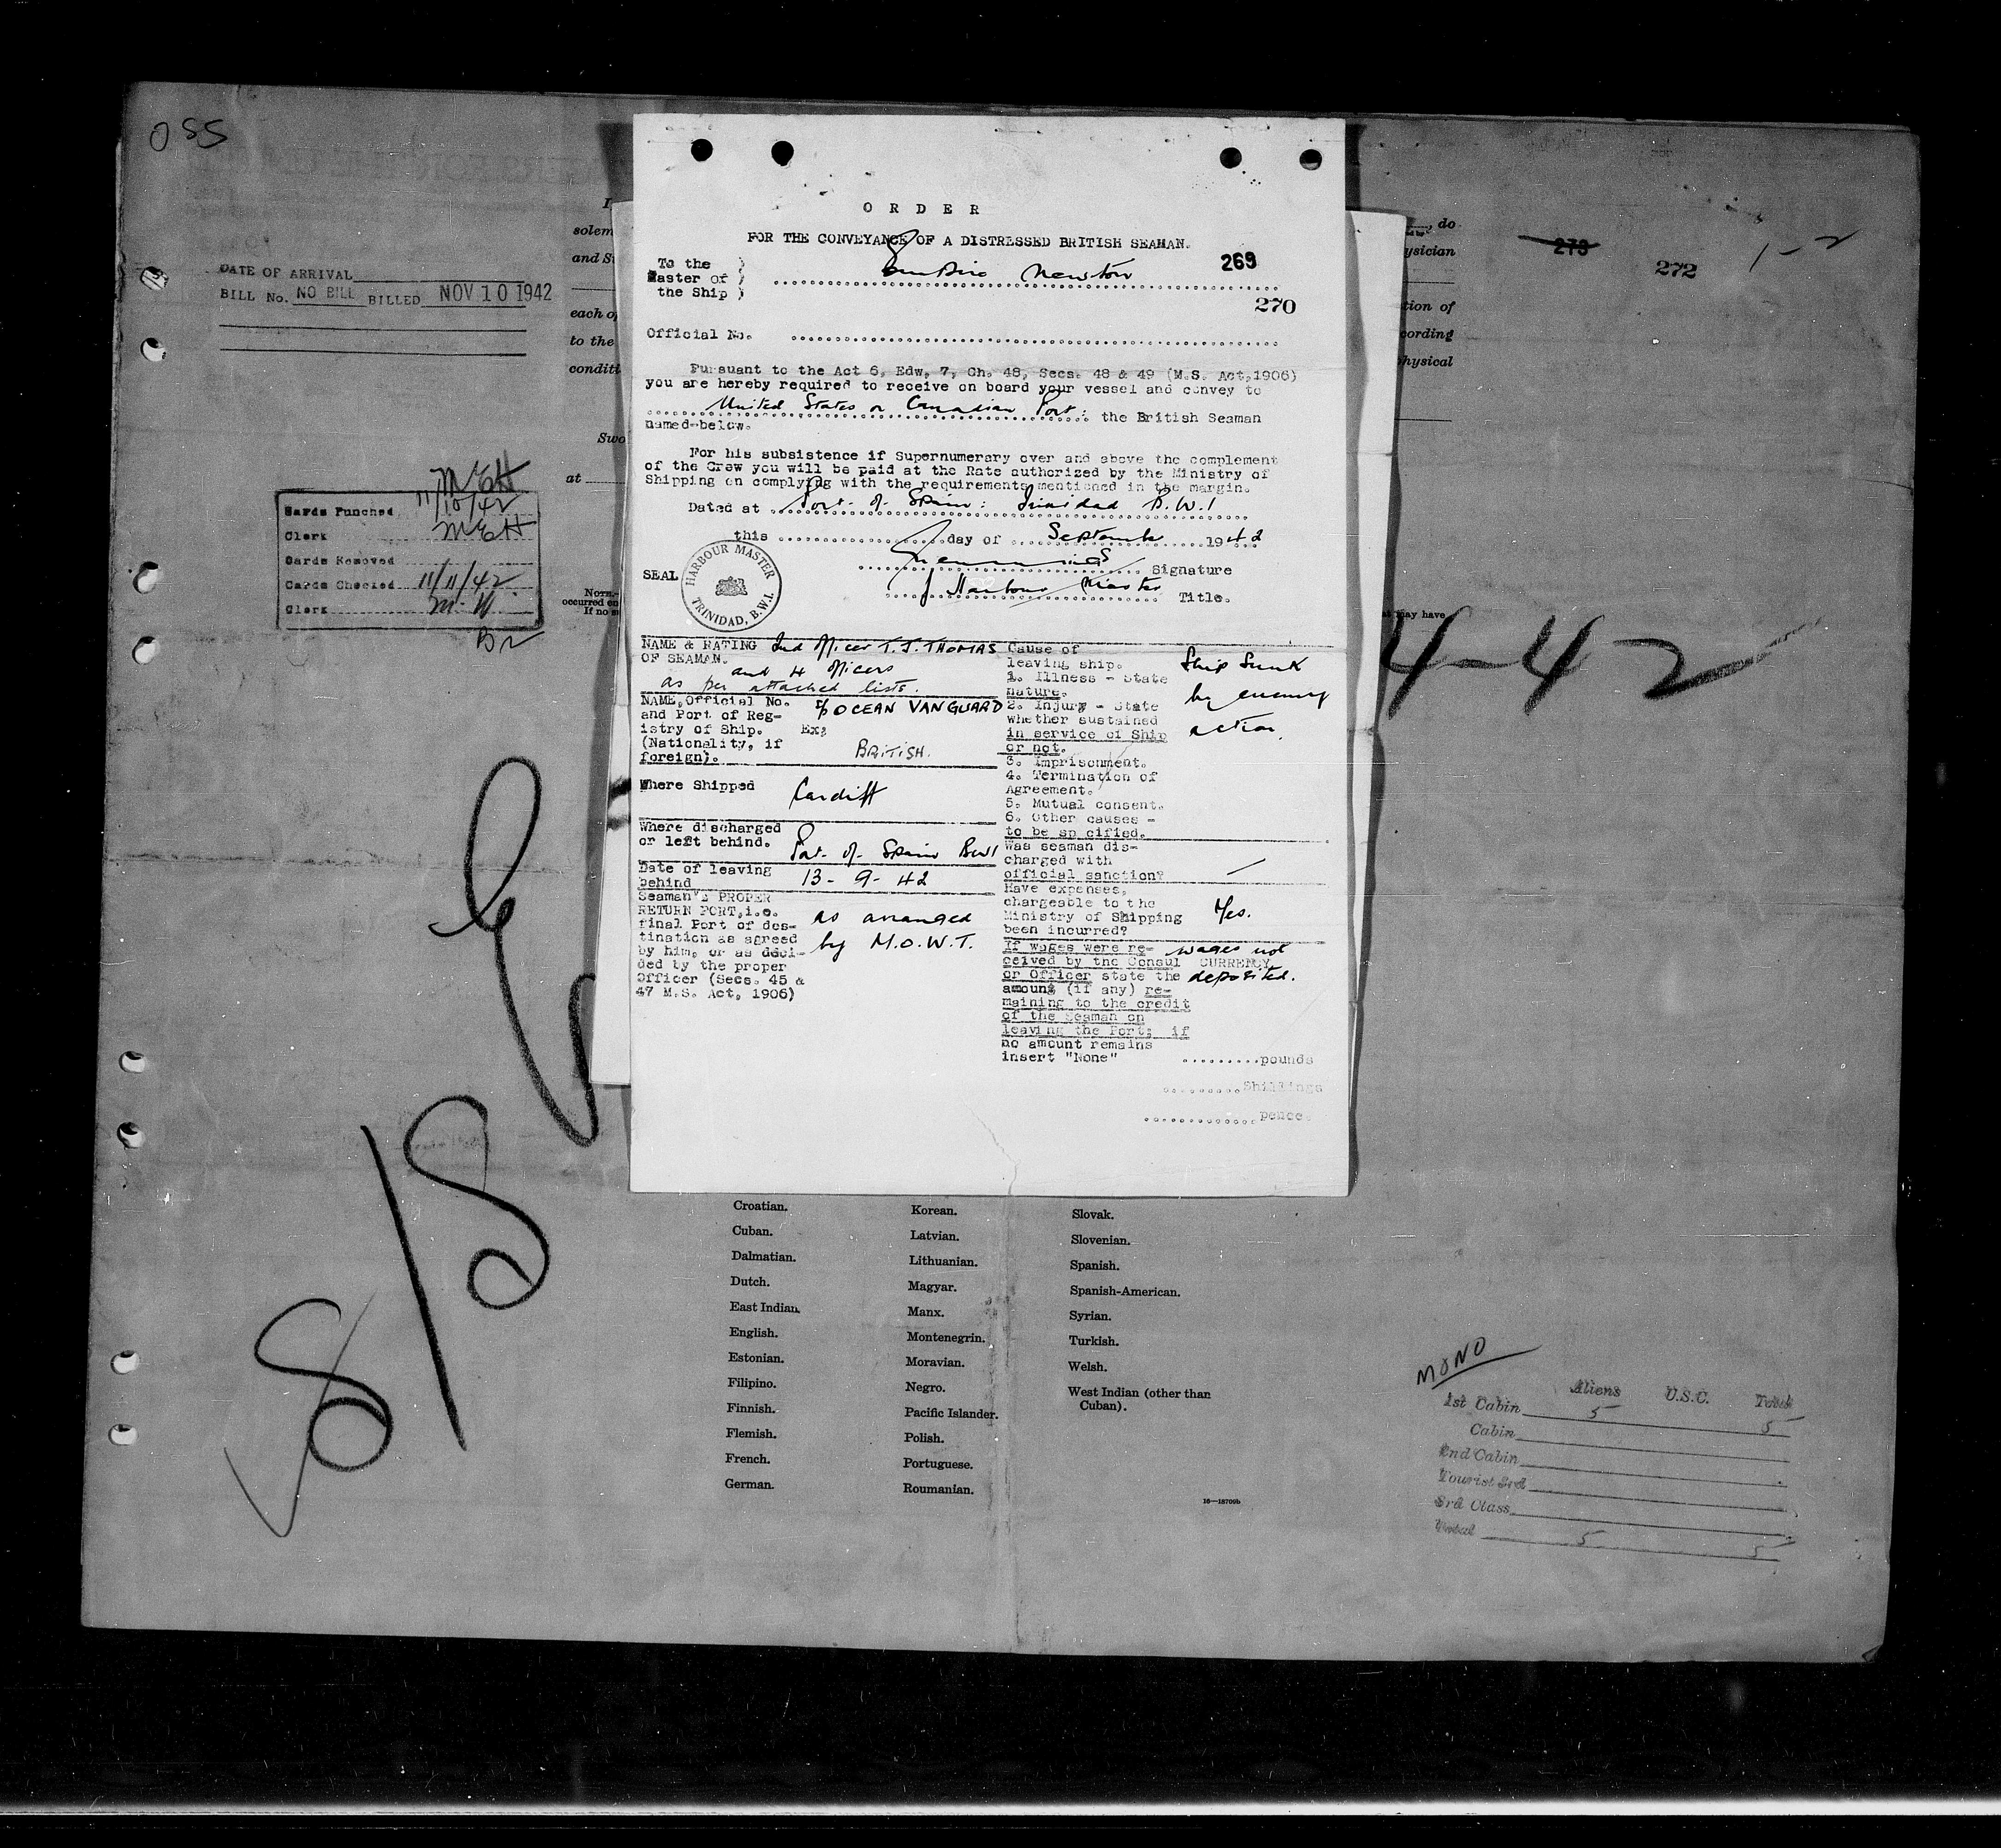 055
DATE OF ARRIVAL
BILL No. NO BILL BILLED NOV 10 1942
I
solem
and S
each o
to the
conditi
Swo
at
do
ysician
tion of
cording
hysical
may have
273
272
1-2
M E H
Cards Punched 11/10/42
Clerk M E H
Cards Removed
Cards Checked 11/11/42
Clerk M. H.
NOTE.-
occurred en
If no s
4-42
ORDER
FOR THE CONVEYANCE OF A DISTRESSED BRITISH SEAMAN.
To the
Master of
the Ship
Empire Newton
269
270
Official No.
Pursuant to the Act 6, Edw, 7, Ch. 48, Secs. 48 & 49 (M.S. Act,1906)
you are hereby required to receive on board your vessel and convey to
United States or Canadian Port: the British Seaman
named-below.
For his subsistence if Supernumerary over and above the complement
of the Crew you will be paid at the Rate authorized by the Ministry of
Shipping on complying with the requirements mentioned in the margin.
Dated at Port of Spain: Trinidad B.W.I
this day of September 1942
Signature
SEAL
HARBOUR MASTER
TRINIDAD, B.W.I.
f Harbour Master Title.
NAME & RATING 2nd Officer T. J. THOMAS
OF SEAMAN. and 4 Officers
as per attached lists.
NAME, Official No. S/S OCEAN VANGUARD
and Port of Reg-
istry of Ship. Ex:
(Nationality, if BRITISH.
foreign).
Where Shipped Cardiff
Where discharged
or left behind. Port of Spain BWI
Date of leaving
behind 13-9-42
Seaman's PROPER
RETURN PORT,i.e. as arranged
final Port of des-
tination as agreed by M.O.W.T.
by him, or as deci-
ded by the proper
Officer (Secs. 45 &
47 M.S. Act, 1906)
Cause of
leaving ship. Ship Sunk
1. Illness - State
nature. by enemy
2. Injury - State
whether sustained
in service of Ship action.
or not.
3. Imprisonment.
4. Termination of
Agreement.
5. Mutual consent.
6. Other causes -
to be sp cified.
Was seaman dis-
charged with
official sanction?
Have expenses,
chargeable to the
Ministry of Shipping Yes.
been incurred?
If wages were re- wages not
ceived by the Consul CURRENCY
or Officer state the deposited.
amount (if any) re-
maining to the credit
of the Seaman on
leaving the Port; if
no amount remains
insert "None" pounds
Shillings
pence.
Croatian.
Cuban.
Dalmatian.
Dutch.
East Indian.
English.
Estonian.
Filipino.
Finnish.
Flemish.
French.
German.
Korean.
Latvian.
Lithuanian.
Magyar.
Manx.
Montenegrin.
Moravian.
Negro.
Pacific Islander.
Polish.
Portuguese.
Roumanian.
Slovak.
Slovenian.
Spanish.
Spanish-American.
Syrian.
Turkish.
Welsh.
West Indian (other than
Cuban).
16—18709b
MONO
Aliens U.S.C. Total
1st Cabin 5 5
Cabin
2nd Cabin
Tourist 3rd
3rd Class
Total 5 5